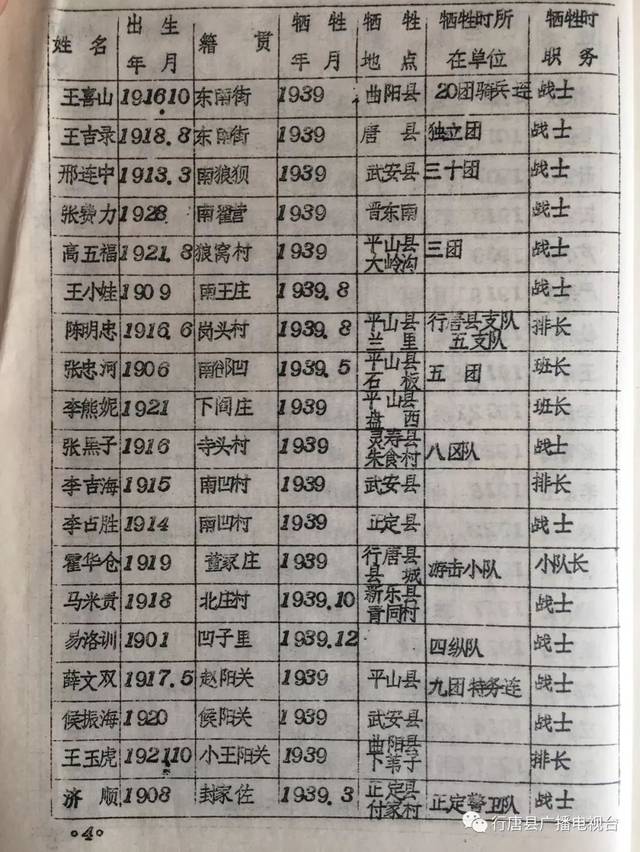 姓名 出生年月 籍贯 牺牲年月 牺牲地点 牺牲时所在单位 牺牲时职务
王喜山 1916.10 东南街 1939 曲阳县 20团骑兵连 战士
王吉录 1918.8 东南街 1939 唐县 独立团 战士
邢连中 1913.3 南狼狈 1939 武安县 三十团 战士
张费力 1928 南翟营 1939 晋东南 战士
高五福 1921.8 狼窝村 1939 平山县大岭沟 三团 战士
王小娃 1909 南王庄 1939.8 战士
陈明忠 1916.6 岗头村 1939.8 平山县兰里 行唐县支队五支队 排长
张忠河 1906 南郤凹 1939.5 平山县石板 五团 班长
李熊妮 1921 下阎庄 1939 平山县盘西 班长
张黑子 1916 寺头村 1939 灵寿县朱食村 八区队 战士
李吉海 1915 南凹村 1939 武安县 排长
李占胜 1914 南凹村 1939 正定县 战士
霍华仓 1919 董家庄 1939 行唐县县城 游击小队 小队长
马米贵 1918 北庄村 1939.10 新乐县青同村 战士
易洛训 1901 凹子里 1939.12 四纵队 战士
薛文双 1917.5 赵阳关 1939 平山县 九团特务连 战士
侯振海 1920 侯阳关 1939 武安县 战士
王玉虎 1921.10 小王阳关 1939 曲阳县下苇子 排长
济顺 1908 封家佐 1939.3 正定县付家村 正定警卫队 战士
·4·
行唐县广播电视台